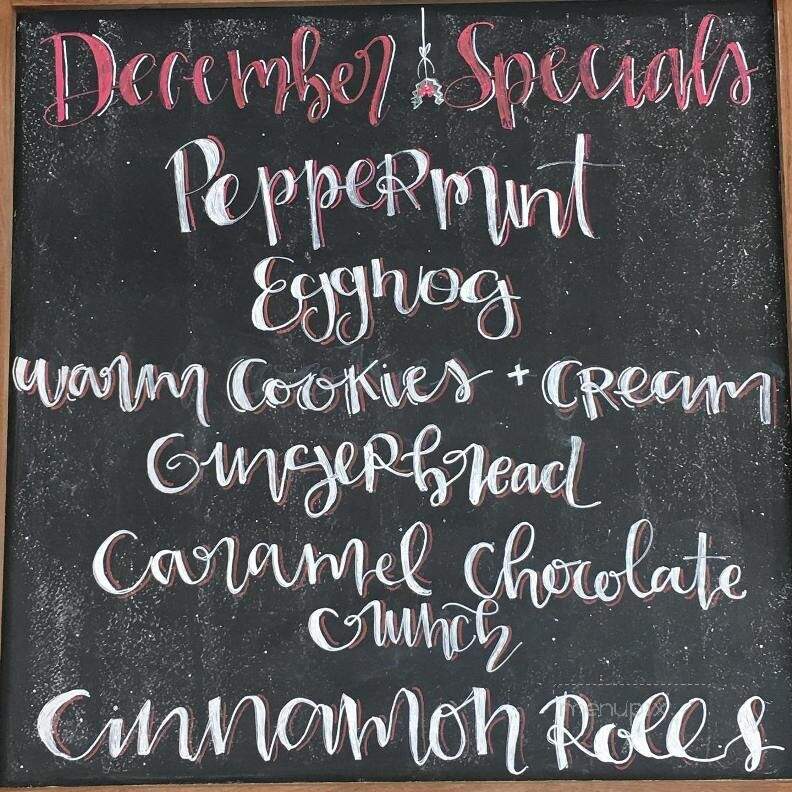 December Specials
Peppermint
Eggnog
warm Cookies + Cream
Gingerbread
Caramel Chocolate
Crunch
Cinnamon Rolls
menupix